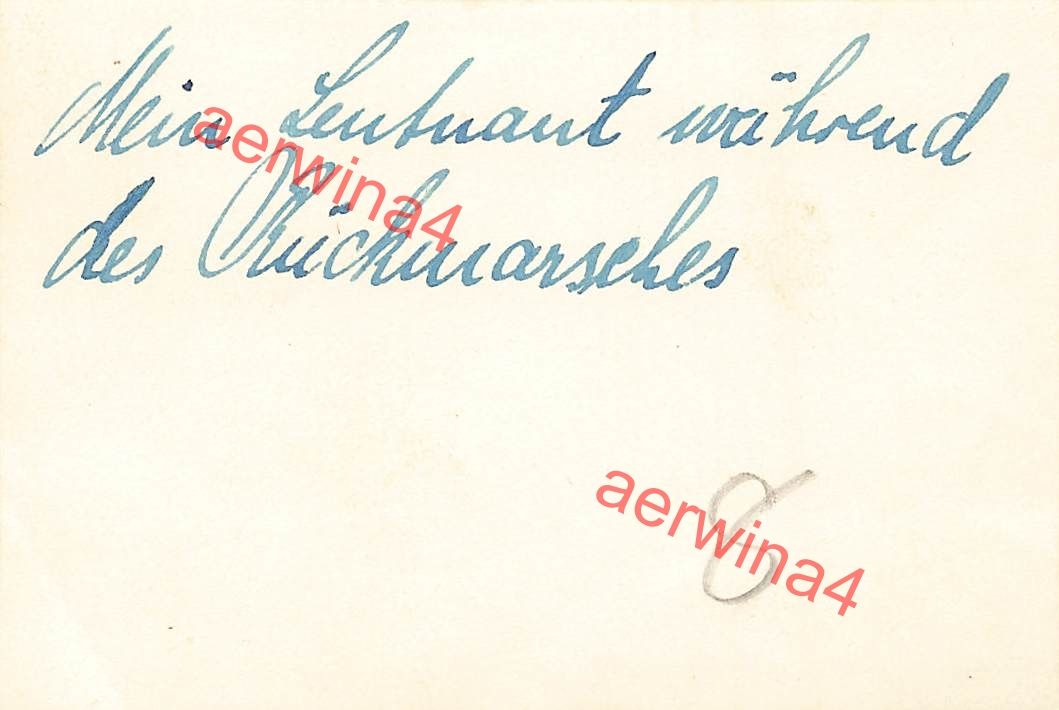 Mein Leutnant während
des Rückmarsches
aerwina4
aerwina4